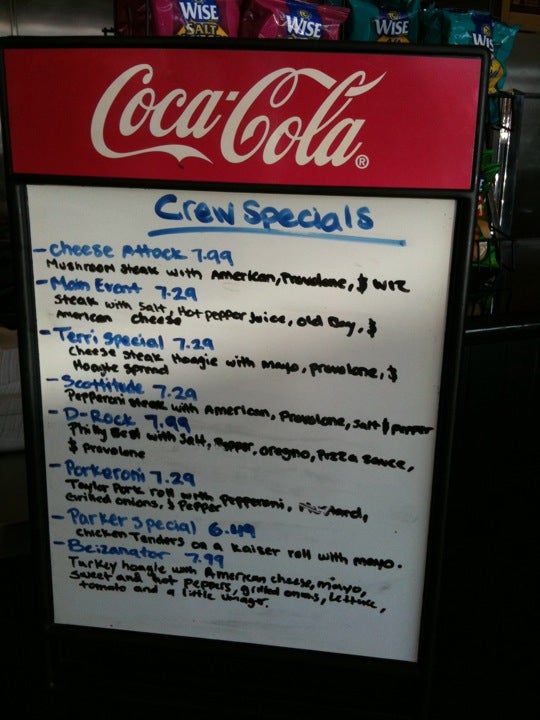 WISE
SALT
WISE
WISE
WIS
Coca-Cola®
Crew Specials
- Cheese Attack 7.99
Mushroom steak with American, Provolone, $ WIZ
- Main Event 7.29
Steak with Salt, Hot pepper Juice, Old Bay, $
American cheese
- Terri Special 7.29
Cheese steak Hoagie with mayo, provolone, $
Hoagie spread
- Scottitude 7.29
Pepperoni steak with American, Provolone, salt $ pepper
- D-Rock 7.99
Philly Beef with Salt, Pepper, oregno, Pizza sauce,
$ Provolone
- Porkeroni 7.29
Taylor Pork roll with pepperoni,
Grilled onions, $ Pepper
- Parker Special 6.49
chicken Tenders on a kaiser roll with mayo.
- Beizanator 7.99
Turkey hoagie with American cheese, mayo,
sweet and hot peppers, grilled onions, lettuce,
tomato and a little vinager.